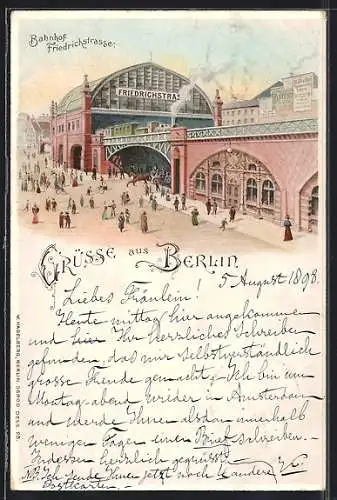 Bahnhof
Friedrichstrasse.
FRIEDRICHSTR.
GRÜSSE aus BERLIN.
5 August 1898
Liebes Fräulein!
Heute mittag hier angekommen
und hier Ihr herzliches Schreiben
gefunden, das mir selbstverständlich
grosse Freude gemacht. Ich bin am
Montag abend wieder in Amsterdam
und werde Ihnen alsdann innerhalb
weniger Tagen einen Brief schreiben.
Indessen herzlich gegrüsst
NB. Ich sende Ihnen jetzt noch 2 andere
Postkarten.
W. HAGELBERG, BERLIN